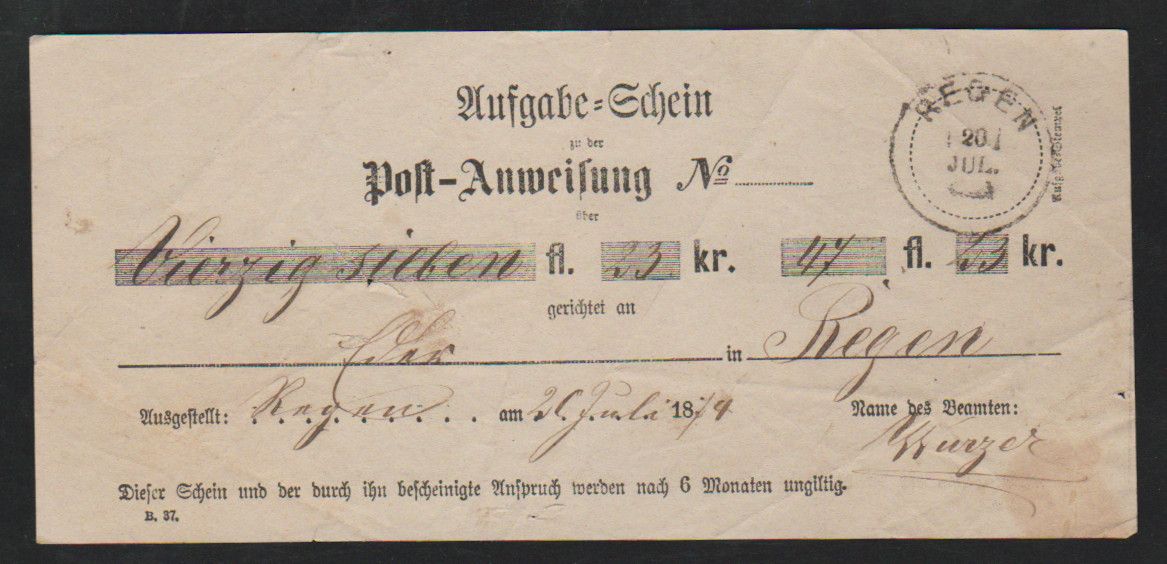 Aufgabe-Schein
zu der
Post-Anweisung No
über
Vierzig sieben fl. 23 kr. 47 fl. 23 kr.
gerichtet an
Eder in Regen
Ausgestellt: Regen am 20 Juli 1874
Name des Beamten:
Wurzer
Dieser Schein und der durch ihn bescheinigte Anspruch werden nach 6 Monaten ungiltig.
B. 37.
REGEN
20
JUL.
Aufgabe-Stempel